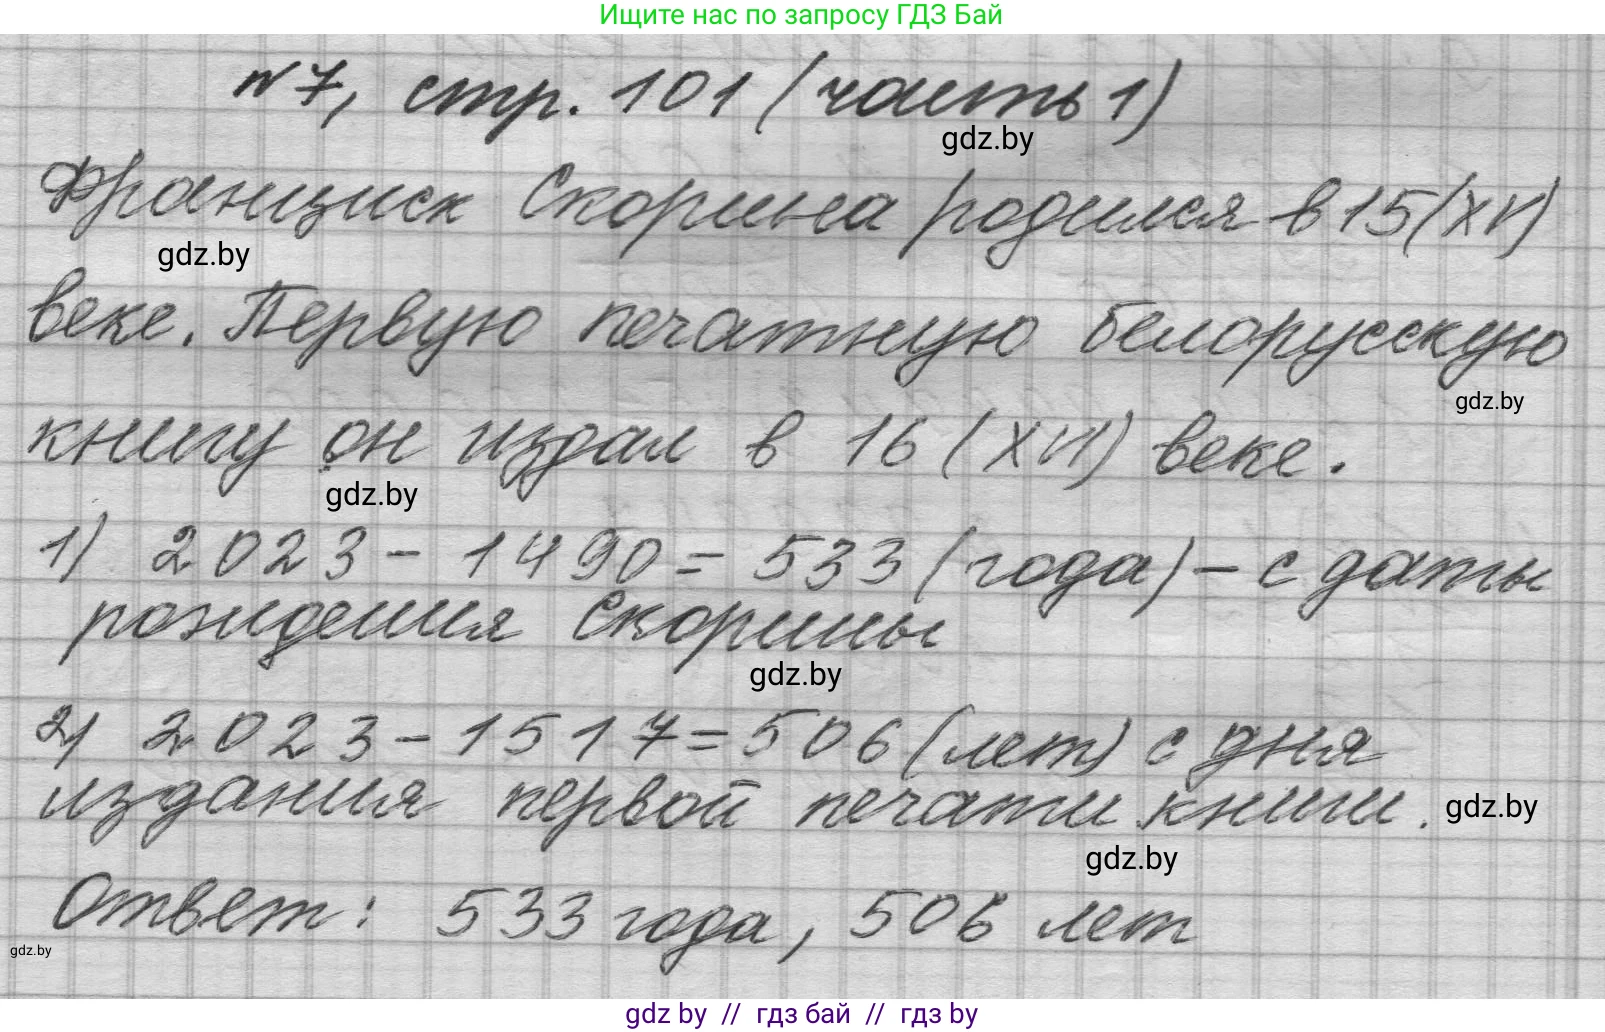 Ищите нас по запросу ГДЗ Бай
№7, стр. 101 (часть 1)
gdz.by
Франциск Скорина родился в 15(XV)
gdz.by
веке. Первую печатную белорусскую
gdz.by
книгу он издал в 16 (XVI) веке.
gdz.by
1) 2023 - 1490 = 533 (года) - с даты
рождения Скорины
gdz.by
2) 2023 - 1517 = 506 (лет) с дня
издания первой печати книги.
gdz.by
gdz.by
Ответ: 533 года, 506 лет
gdz.by
gdz by // гдз бай // гдз by